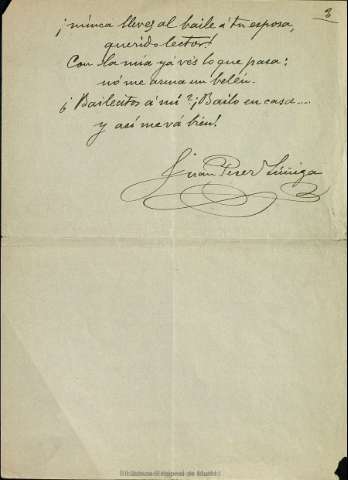 3
¡nunca lleves al baile á tu esposa,
querido lector!
Con la mía yá vés lo que pasa:
nó me arma un belén.
¿Bailecitos á mí? ¡Bailo en casa....
y así me vá bien!
Juan Perez Zúñiga
Biblioteca Regional de Madrid